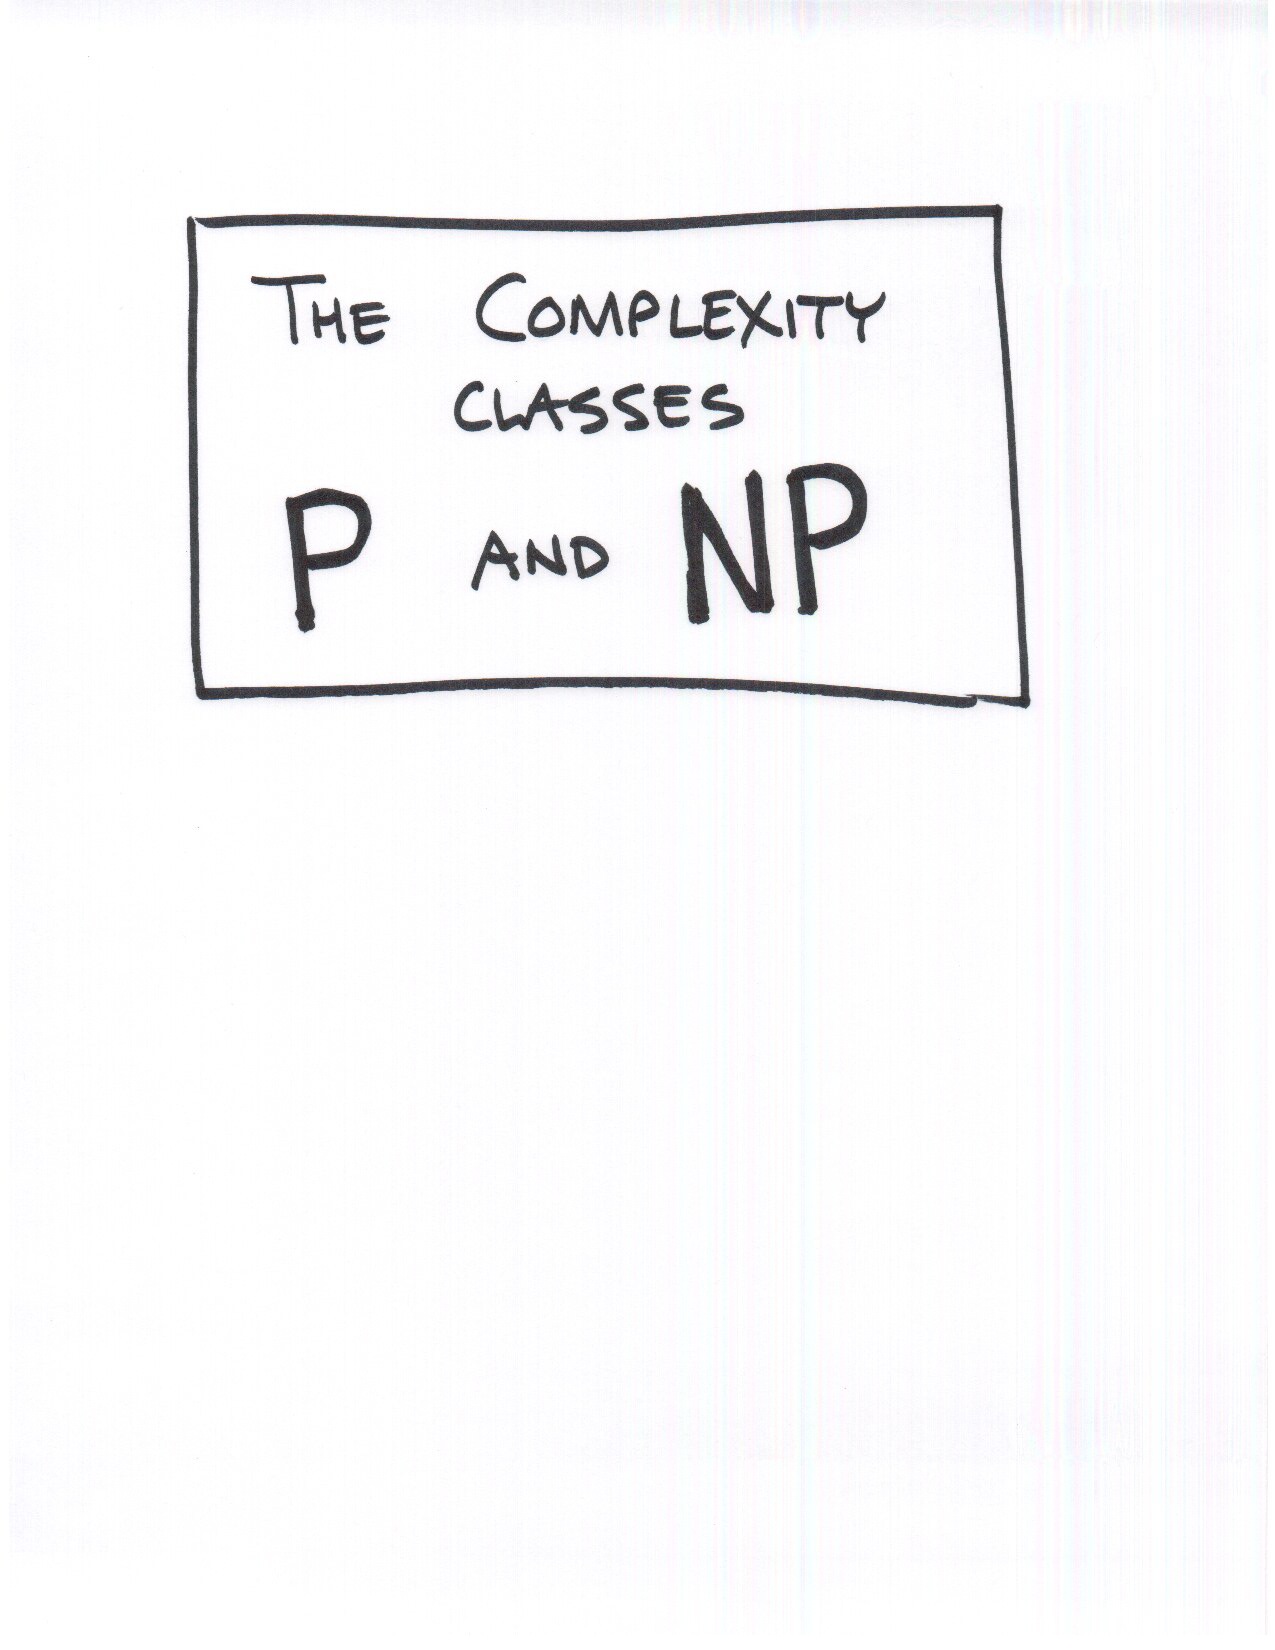 THE COMPLEXITY
CLASSES
P AND NP